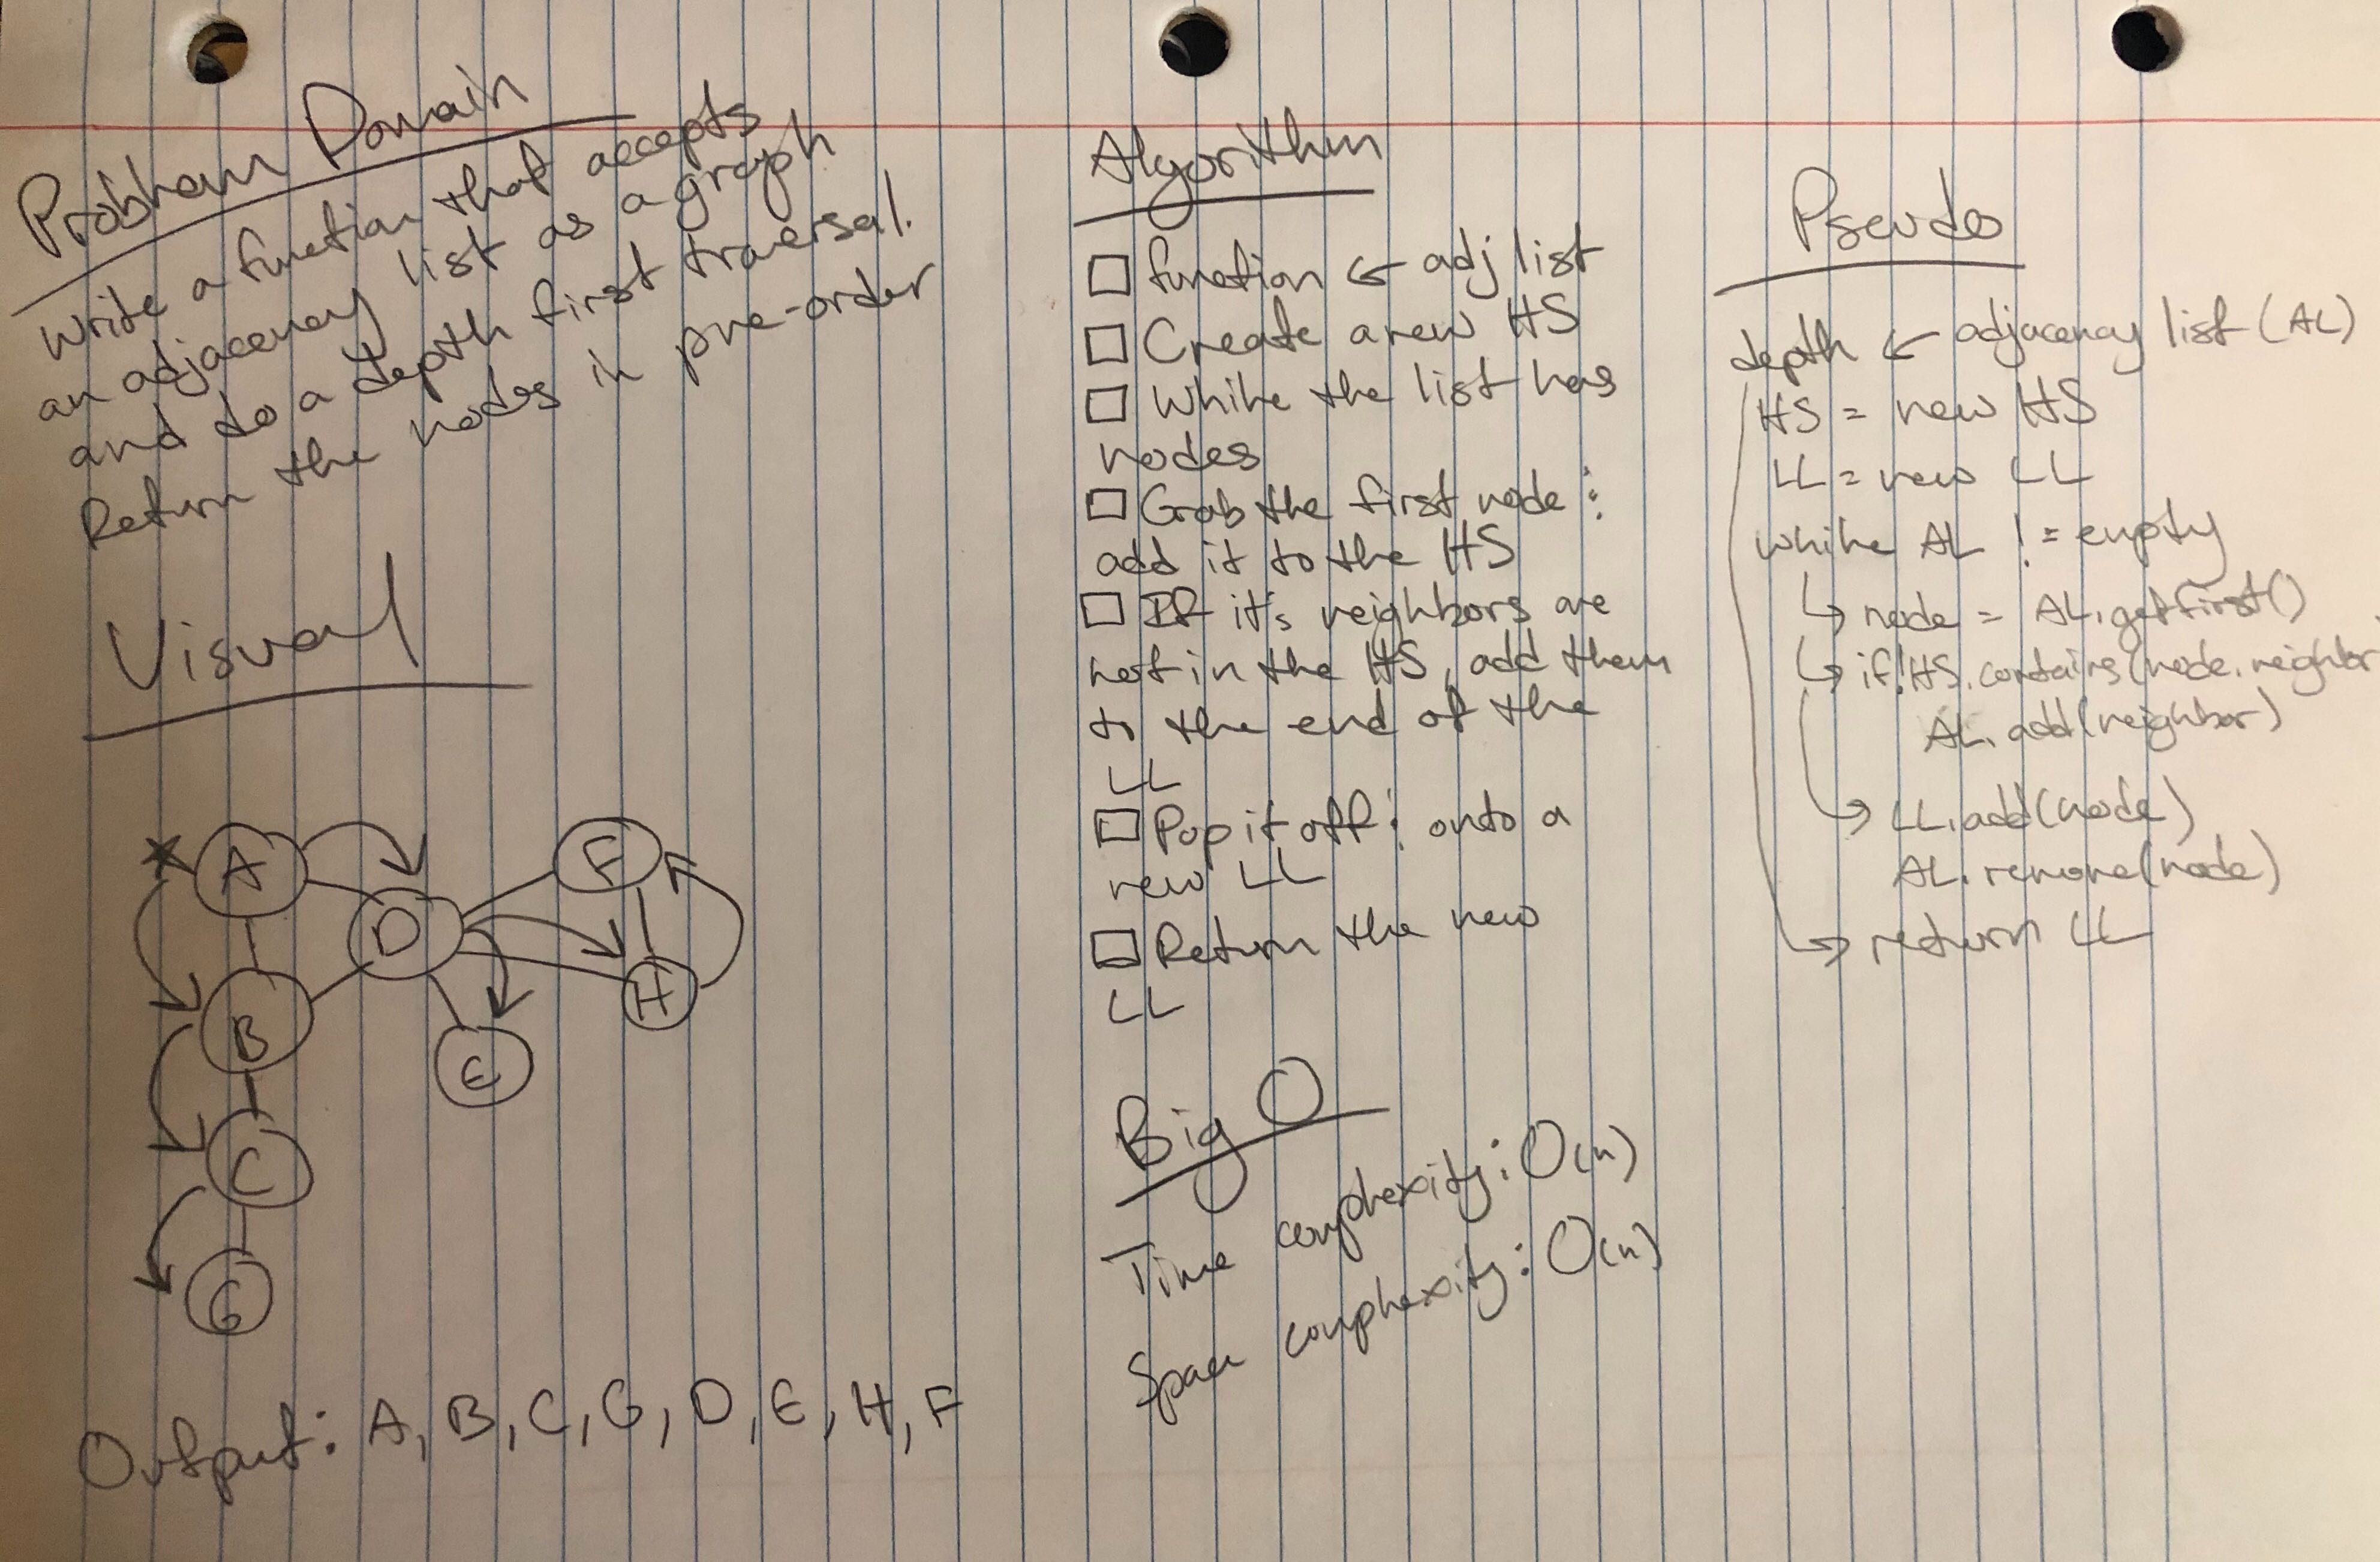 Problem Domain
Write a function that accepts
an adjacency list as a graph
and do a depth first traversal.
Return the nodes in pre-order
Visual
A
F
D
H
B
E
C
G
Output: A, B, C, G, D, E, H, F
Algorithm
□ function ← adj list
□ Create a new HS
□ While the list has
nodes
□ Grab the first node :
add it to the HS
□ If it's neighbors are
not in the HS, add them
to the end of the
LL
□ Pop it off : onto a
new LL
□ Return the new
LL
Big O
Time complexity: O(n)
Space complexity: O(n)
Pseudo
depth ← adjacency list (AL)
HS = new HS
LL = new LL
while AL != empty
↳ node = AL.getfirst()
↳ if !HS.contains(node.neighbor
AL.add(neighbor)
→ LL.add(node)
AL.remove(node)
→ return LL